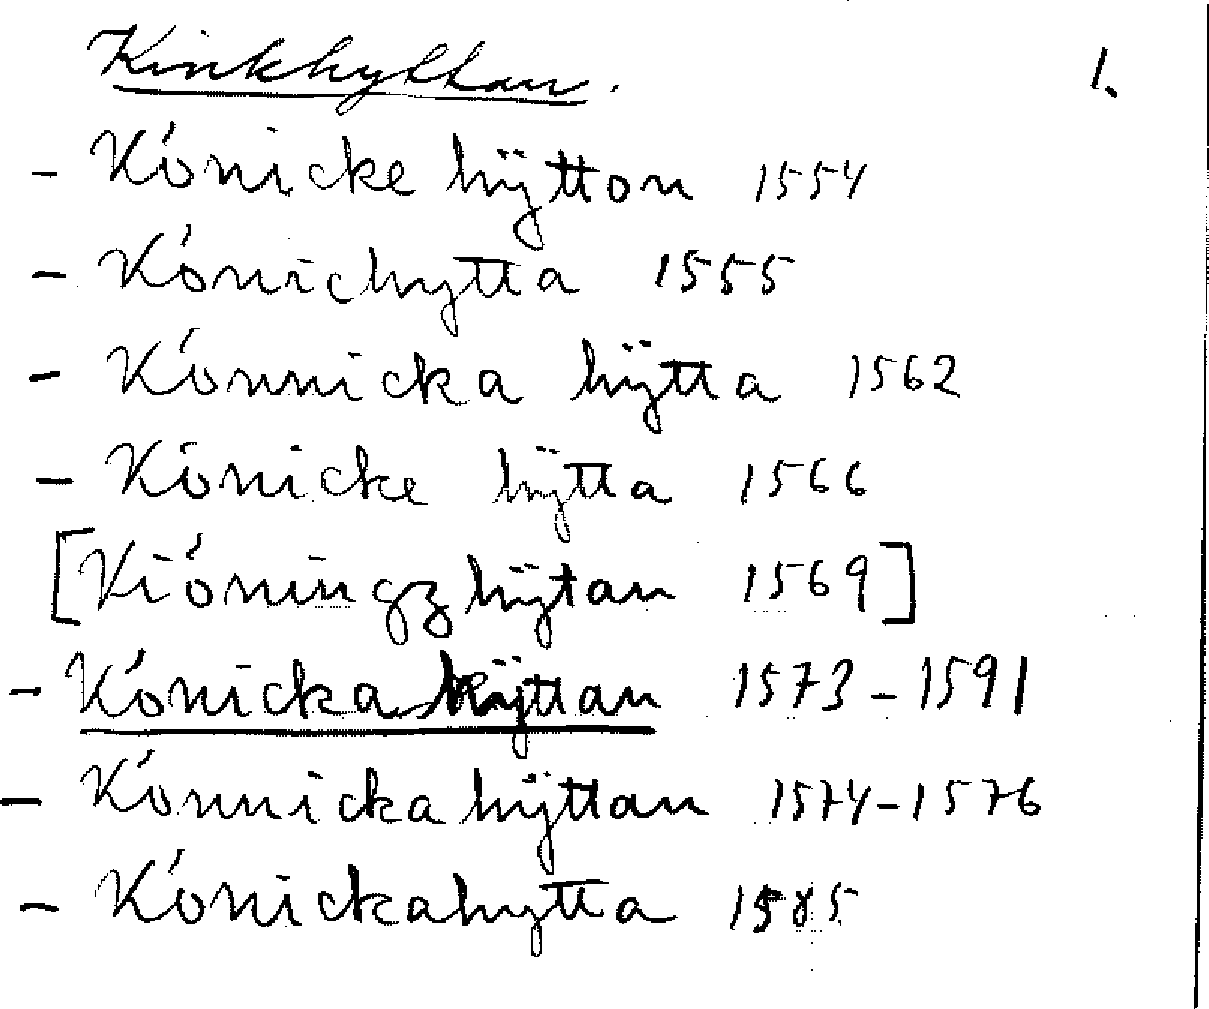 Kinkhyttan. 1.
- Kónicke hÿtton 1554
- Kónichytta 1555
- Kónnicka hÿtta 1562
- Kónicke hÿtta 1566
[Kióningz hÿtan 1569]
- Kónicka hÿttan 1573-1591
- Kónnicka hÿttan 1574-1576
- Kónickahytta 1585